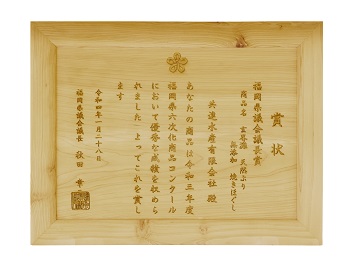 賞状
福岡県議会議長賞
商品名 玄界灘 天然ぶり
無添加 焼きほぐし
共進水産有限会社 殿
あなたの商品は令和三年度
福岡県六次化商品コンクール
において優秀な成績を収めら
れました よってこれを賞し
ます
令和四年一月二十八日
福岡県議会議長 秋田 章二